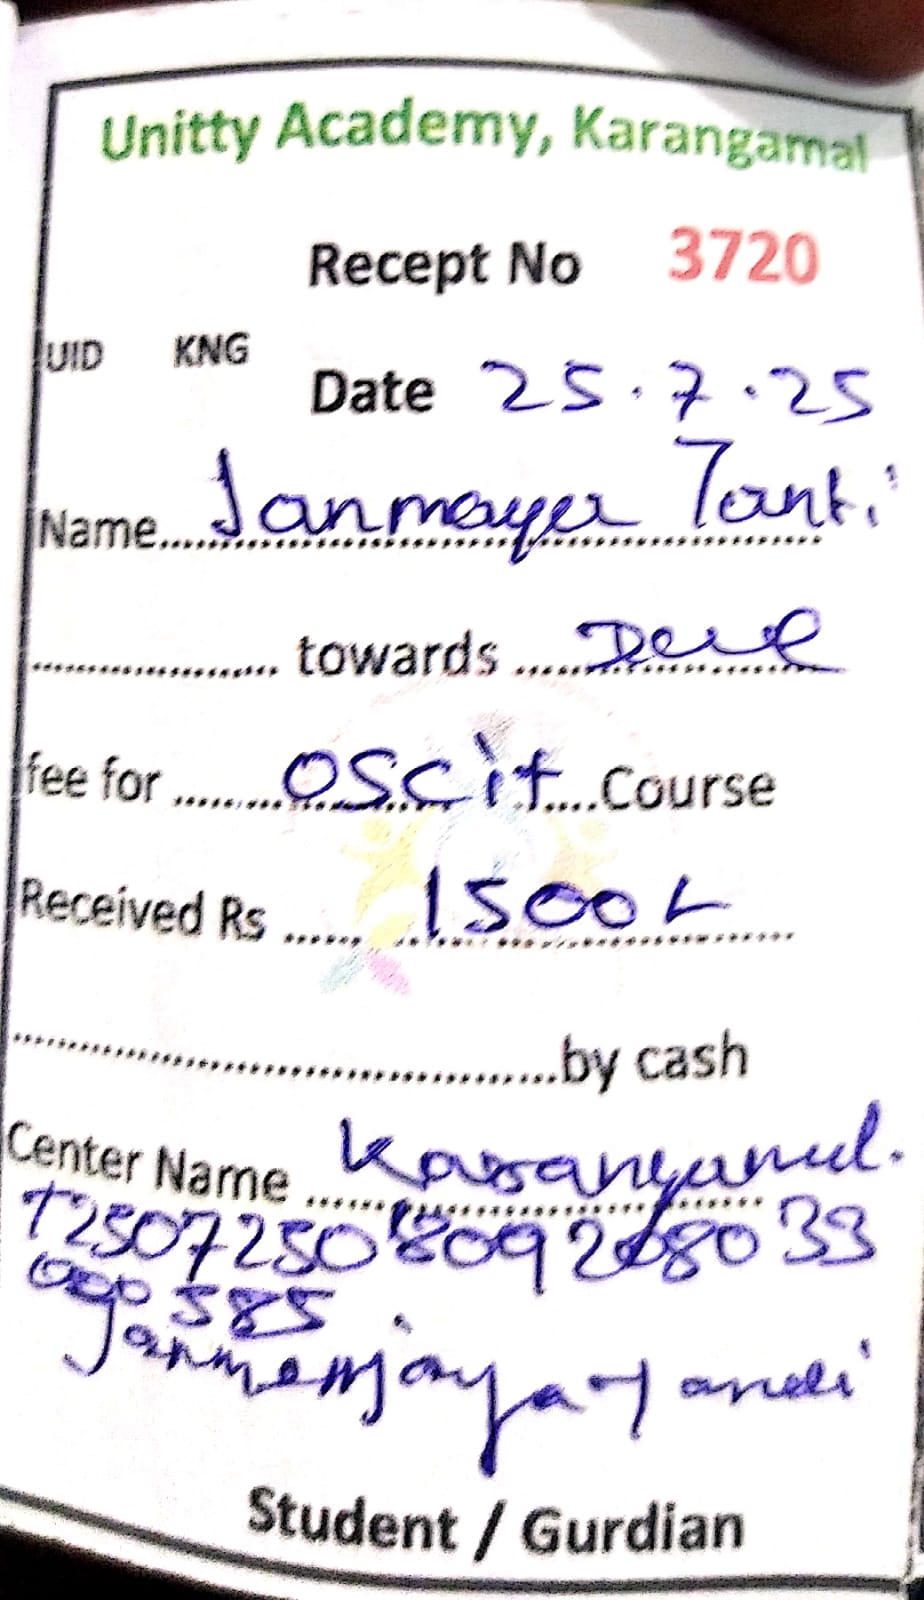 Unitty Academy, Karangamal
Recept No 3720
UID KNG
Date 25.7.25
Name.... Janmayea Tanti
.................... towards ....
fee for ........ OSCit ....Course
Received Rs ...... 1500/-
........................................by cash
Center Name .... Karangamal.
T25072501809268033
000585
Janmenjaya Tandi
Student / Gurdian